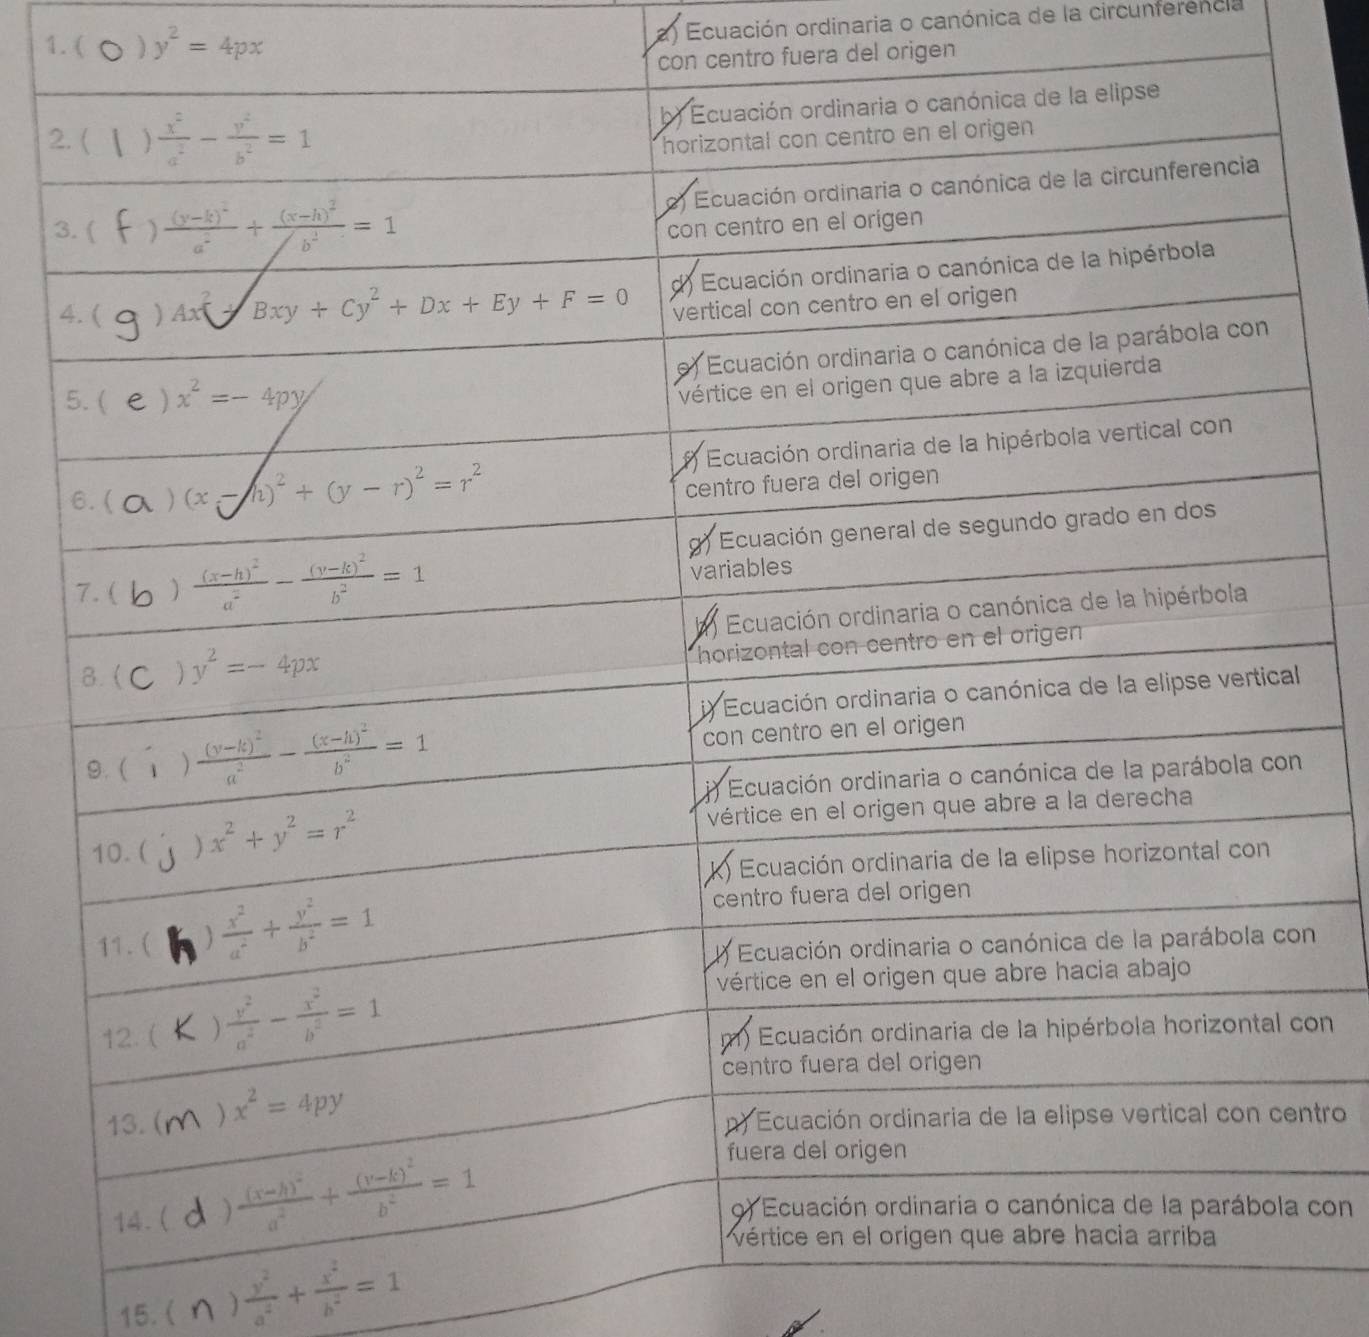 1. ( O ) y² = 4px
a) Ecuación ordinaria o canónica de la circunferencia
con centro fuera del origen
2. ( l ) x²/a² − y²/b² = 1
b) Ecuación ordinaria o canónica de la elipse
horizontal con centro en el origen
3. ( f ) (y−k)²/a² + (x−h)²/b² = 1
c) Ecuación ordinaria o canónica de la circunferencia
con centro en el origen
4. ( g ) Ax² + Bxy + Cy² + Dx + Ey + F = 0
d) Ecuación ordinaria o canónica de la hipérbola
vertical con centro en el origen
5. ( e ) x² = − 4py
e) Ecuación ordinaria o canónica de la parábola con
vértice en el origen que abre a la izquierda
6. ( a ) (x − h)² + (y − r)² = r²
f) Ecuación ordinaria de la hipérbola vertical con
centro fuera del origen
7. ( b ) (x−h)²/a² − (y−k)²/b² = 1
g) Ecuación general de segundo grado en dos
variables
8. ( C ) y² = − 4px
h) Ecuación ordinaria o canónica de la hipérbola
horizontal con centro en el origen
9. ( i ) (y−k)²/a² − (x−h)²/b² = 1
i) Ecuación ordinaria o canónica de la elipse vertical
con centro en el origen
10. ( j ) x² + y² = r²
j) Ecuación ordinaria o canónica de la parábola con
vértice en el origen que abre a la derecha
11. ( h ) x²/a² + y²/b² = 1
k) Ecuación ordinaria de la elipse horizontal con
centro fuera del origen
12. ( K ) y²/a² − x²/b² = 1
l) Ecuación ordinaria o canónica de la parábola con
vértice en el origen que abre hacia abajo
13. ( m ) x² = 4py
m) Ecuación ordinaria de la hipérbola horizontal con
centro fuera del origen
14. ( d ) (x−h)²/a² + (y−k)²/b² = 1
n) Ecuación ordinaria de la elipse vertical con centro
fuera del origen
15. ( n ) y²/a² + x²/b² = 1
o) Ecuación ordinaria o canónica de la parábola con
vértice en el origen que abre hacia arriba